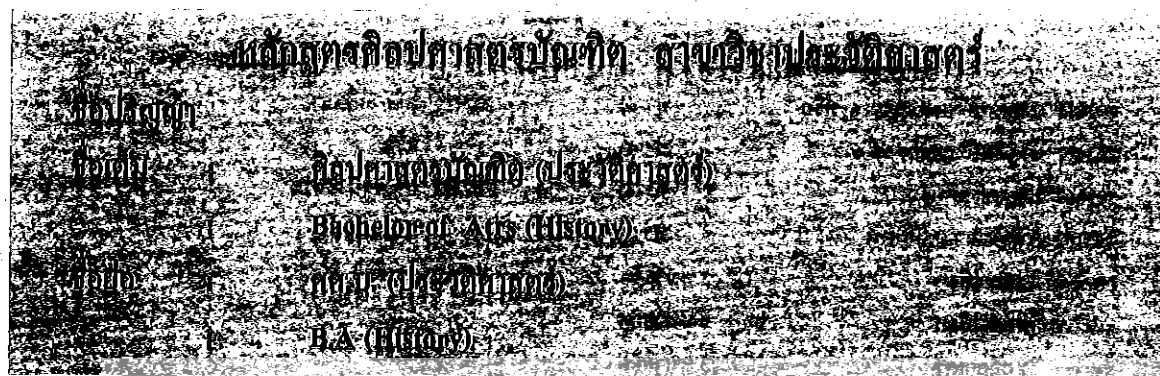 หลักสูตรศิลปศาสตรบัณฑิต สาขาวิชาประวัติศาสตร์
ชื่อปริญญา
ชื่อเต็ม : ศิลปศาสตรบัณฑิต (ประวัติศาสตร์)
: Bachelor of Arts (History)
ชื่อย่อ : ศศ.บ. (ประวัติศาสตร์)
: B.A (History)